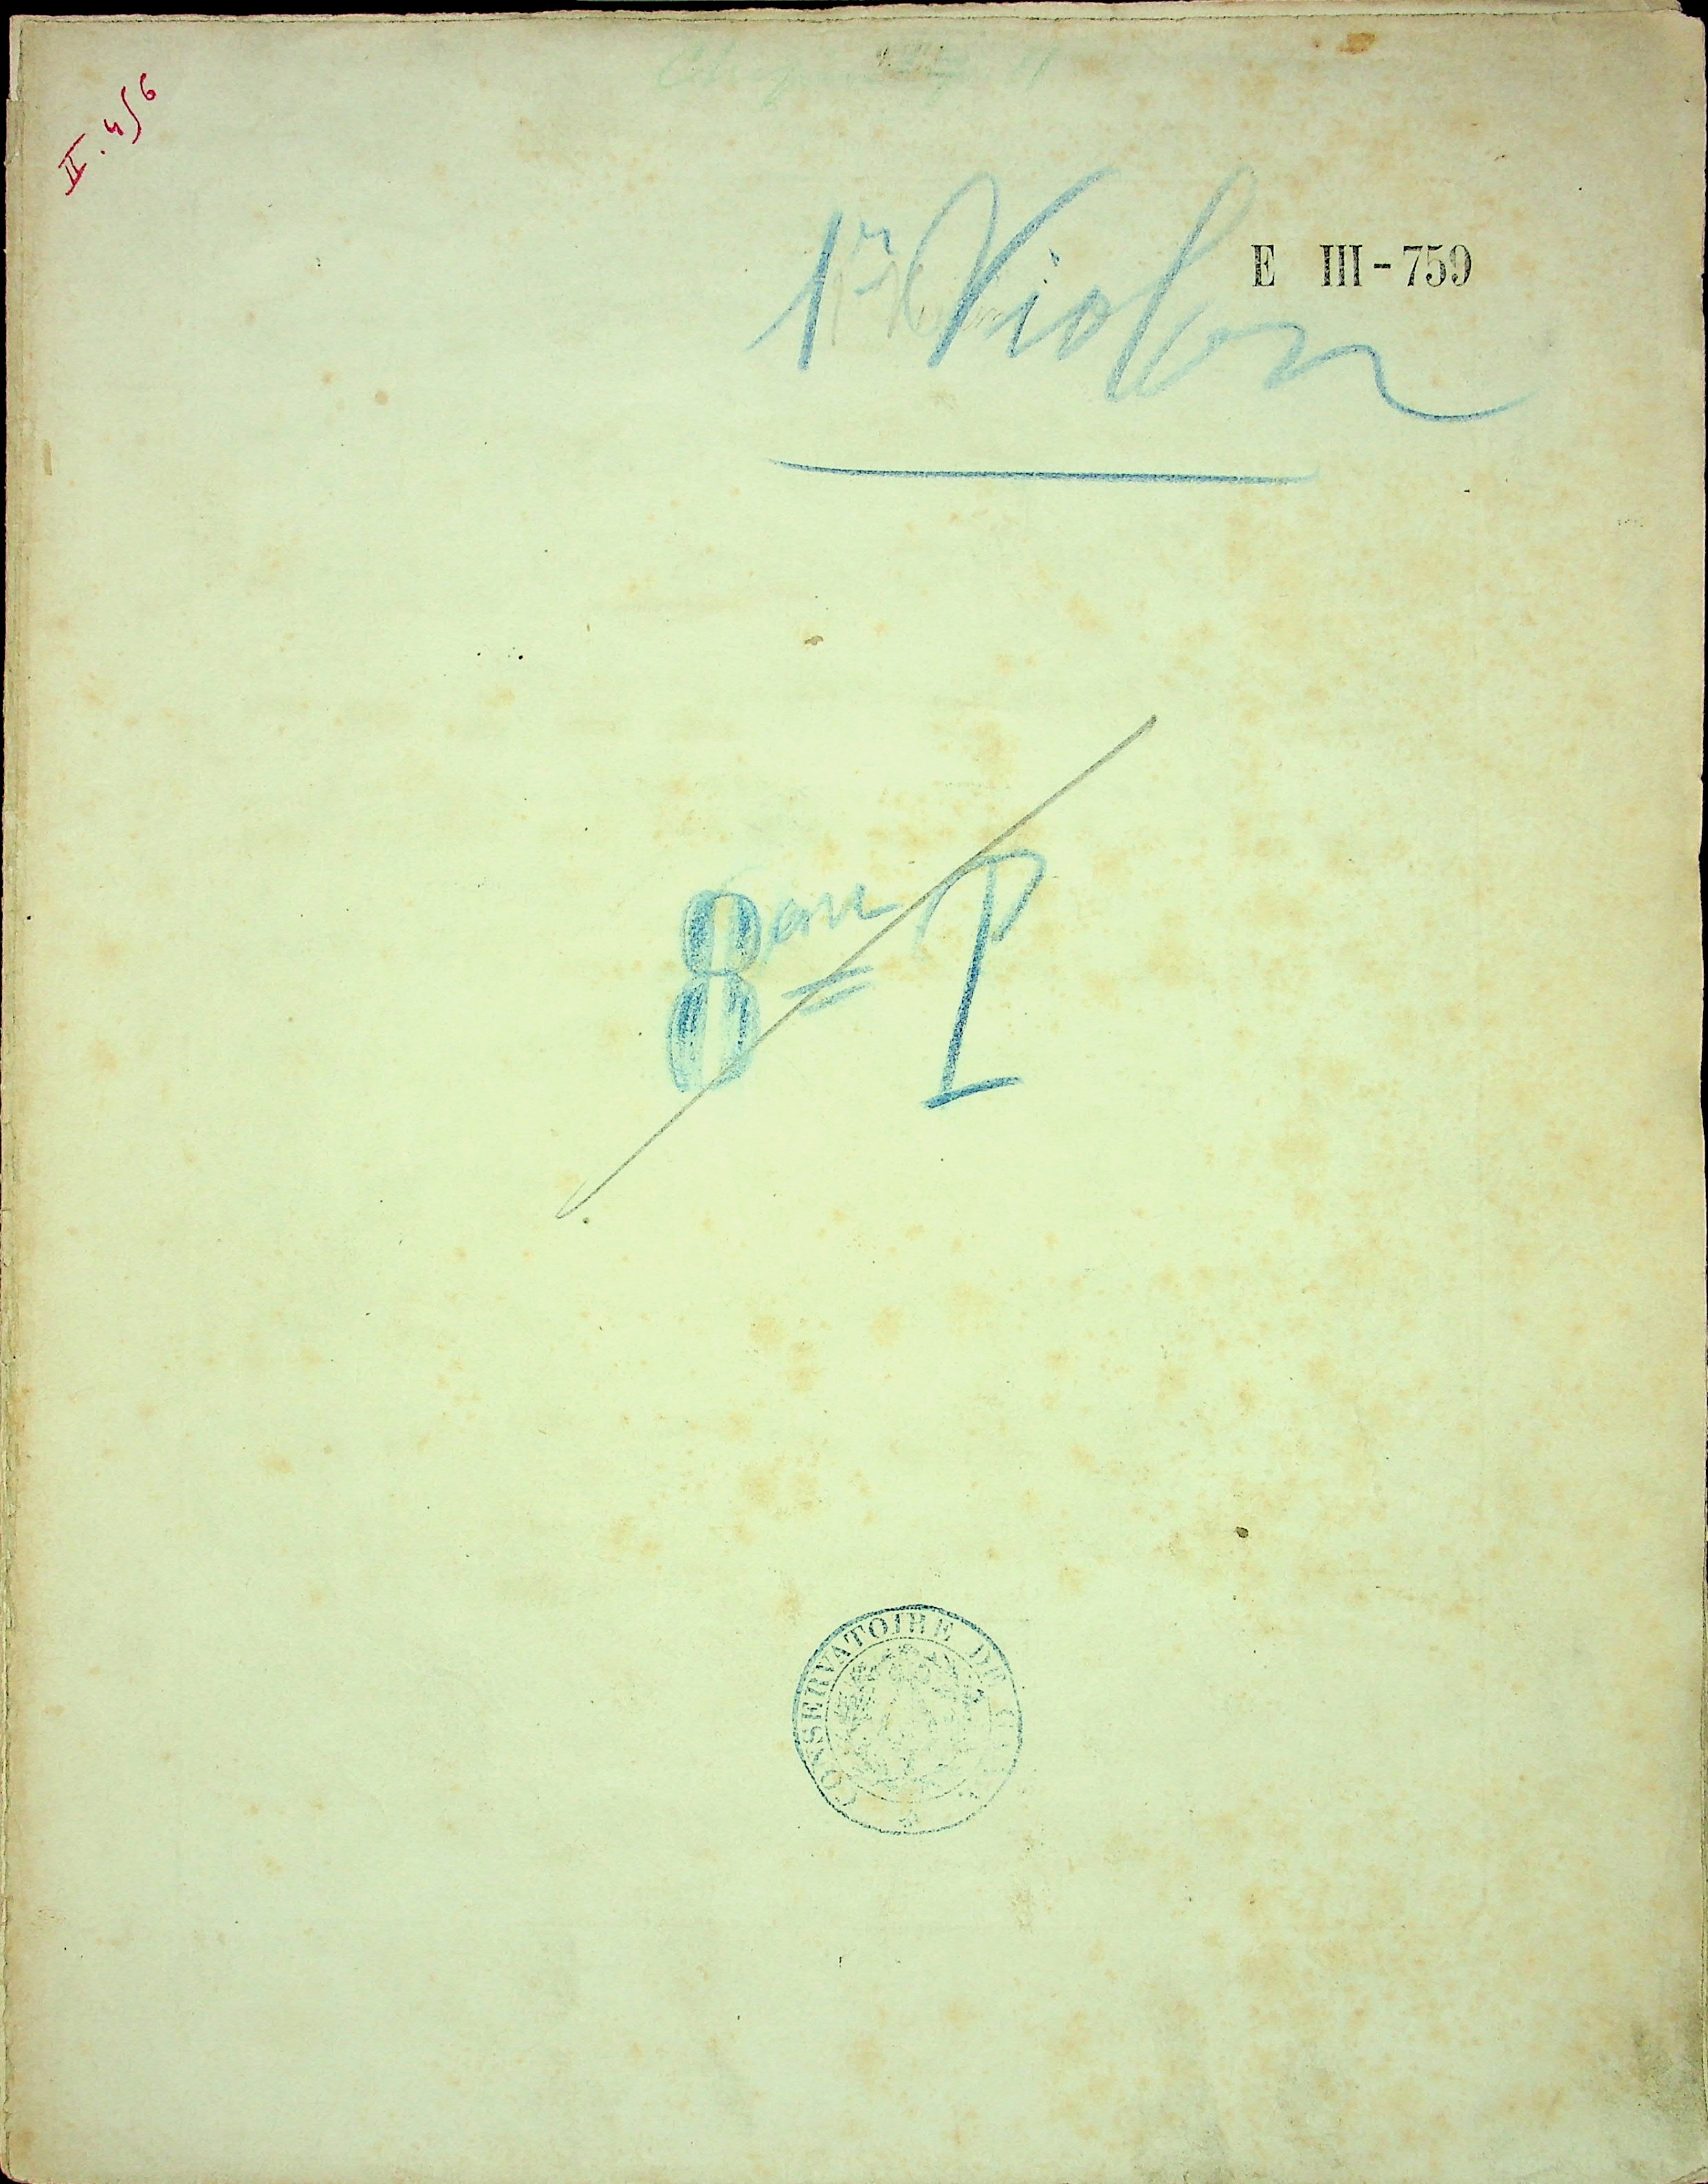 II. 4/6
1r Violon
E III-759
8eme P
CONSERVATOIRE DE